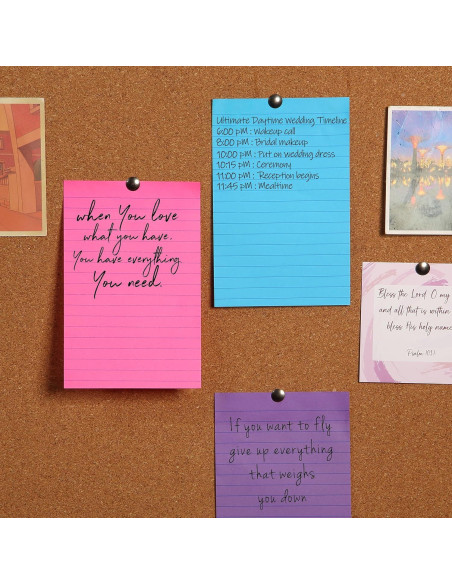 when You love
what you have.
You have everything
You need.
Ultimate Daytime Wedding Timeline
6:00 PM : Wakeup call
8:00 PM : Bridal makeup
10:00 PM : Put on wedding dress
10:15 PM : Ceremony
11:00 PM : Reception begins
11:45 PM : Mealtime
Bless the Lord O my
and all that is within
bless His holy name
Psalm
If you want to fly
give up everything
that weighs
you down